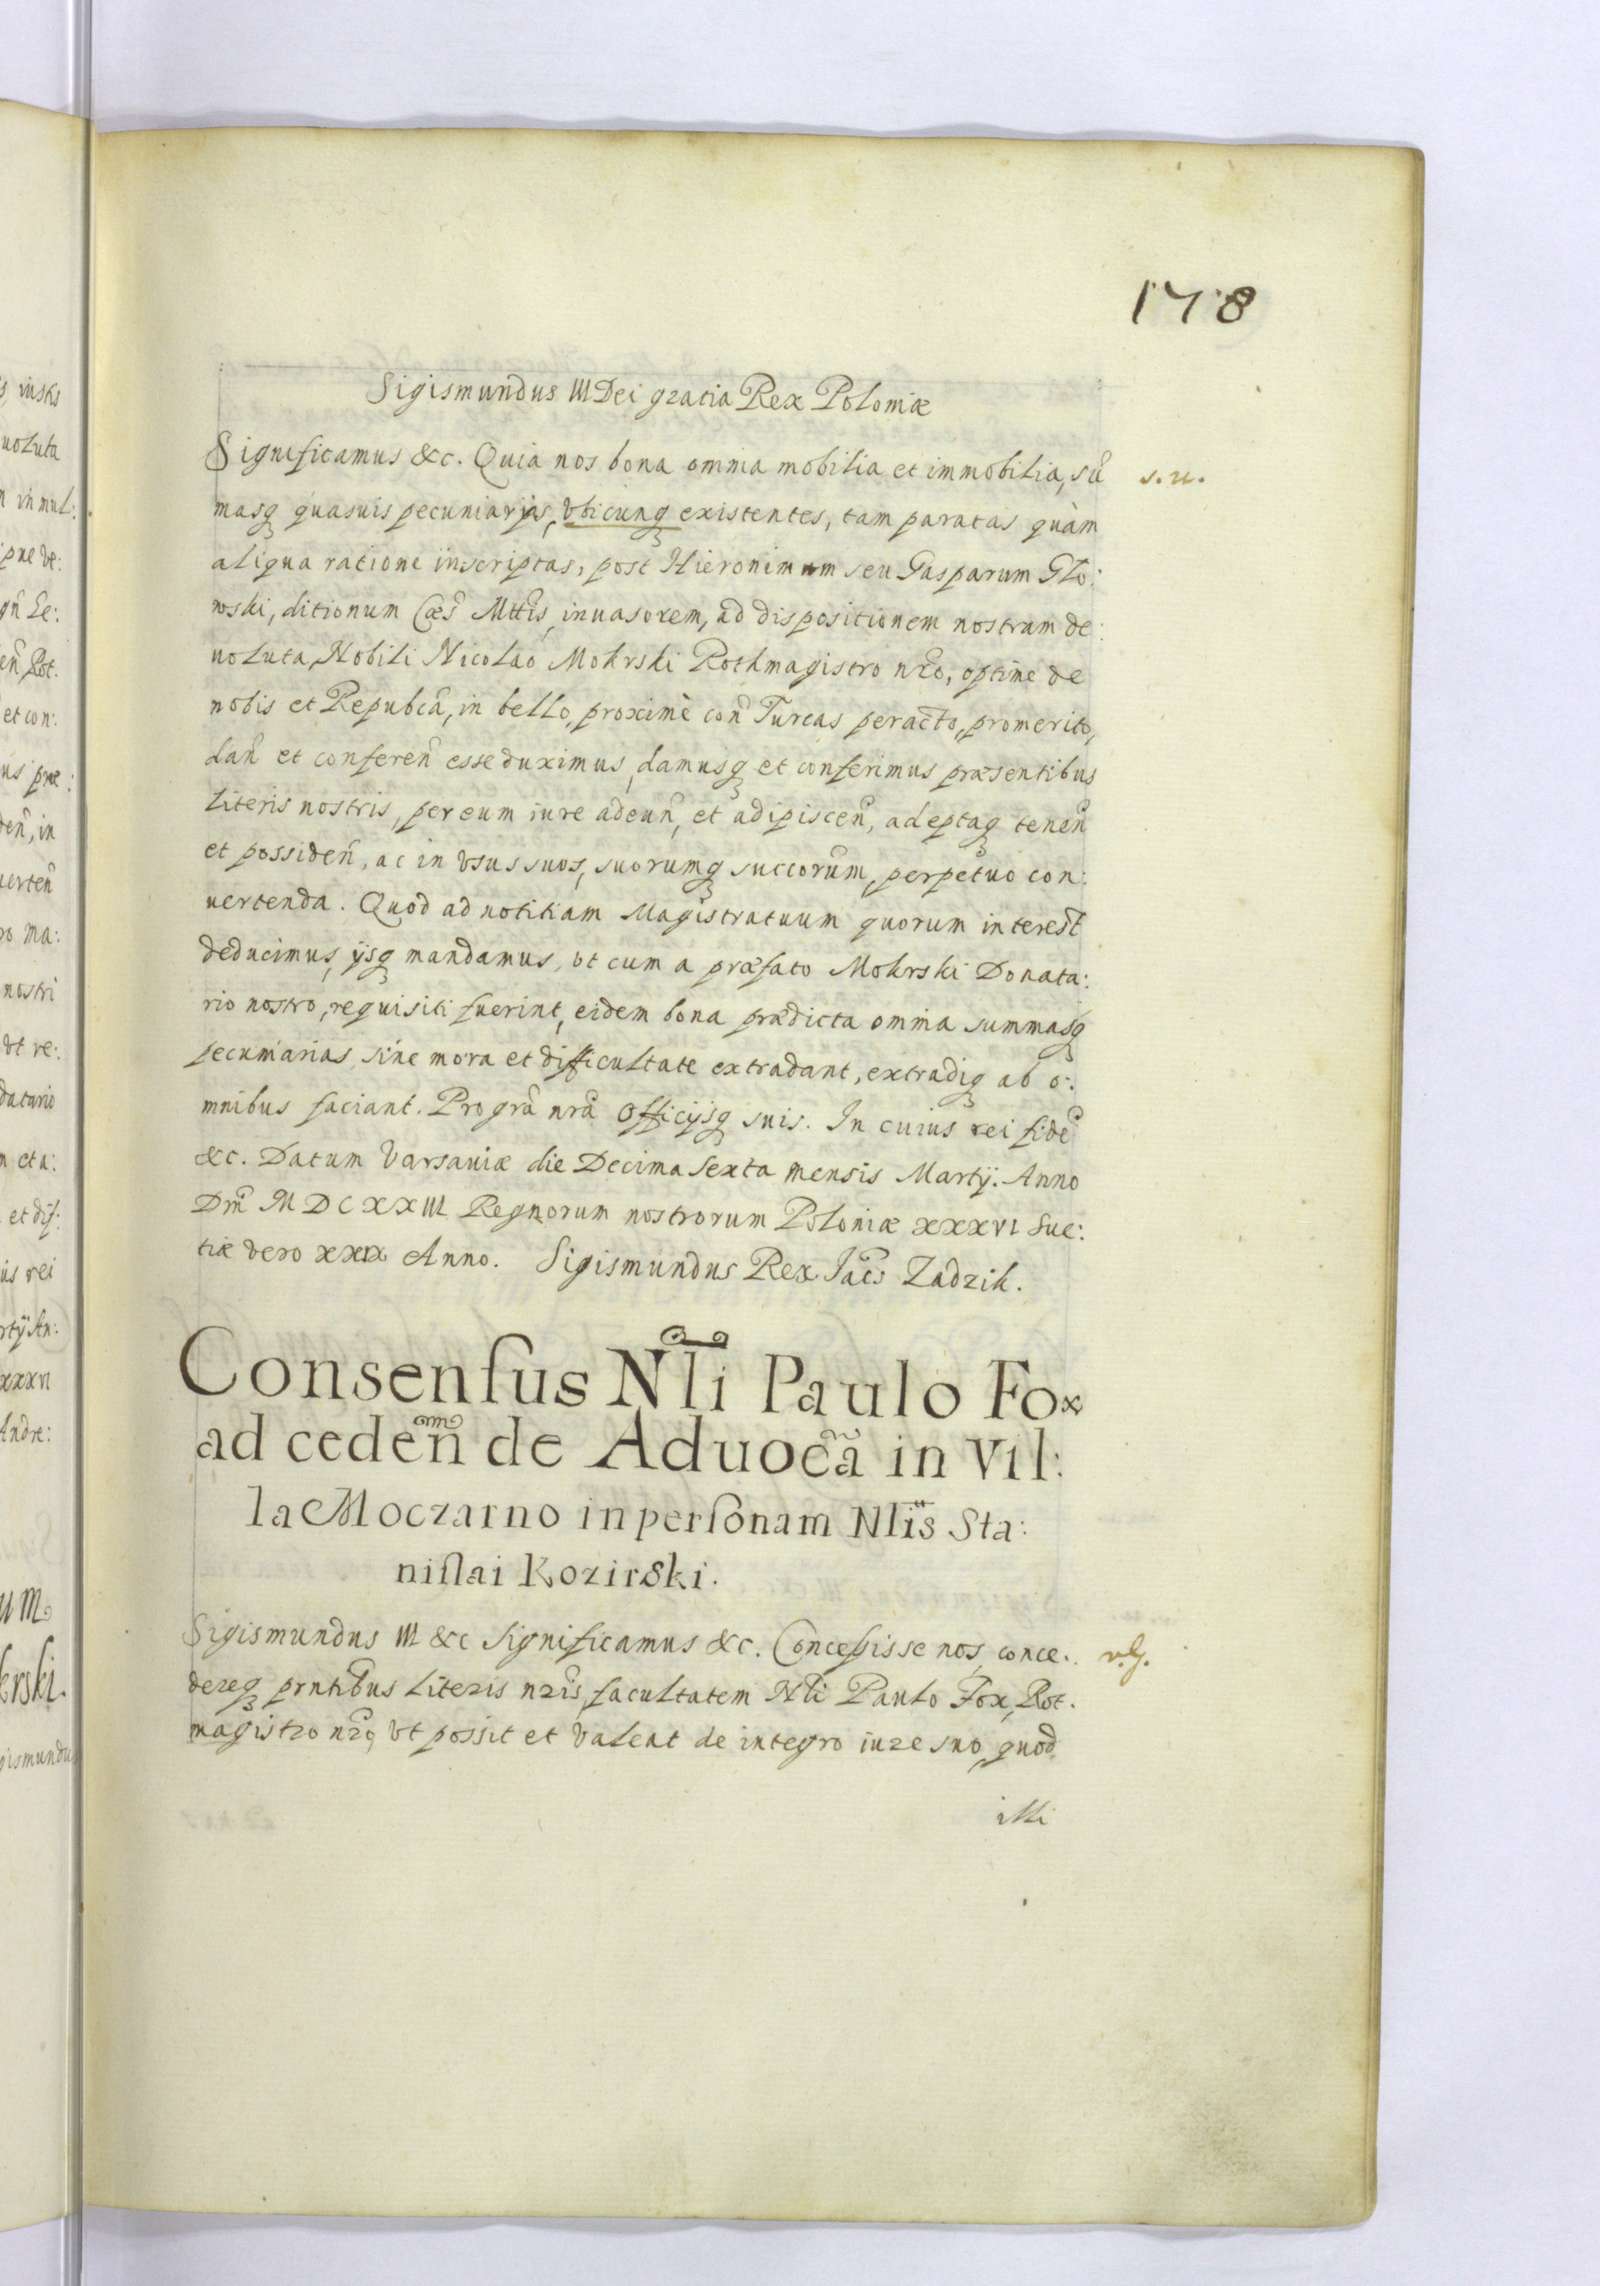 178
Sigismundus III Dei gratia Rex Poloniæ
Significamus &c. Quia nos bona omnia mobilia et immobilia, sũ s. u.
masq₃ quasuis pecuniarias, vbicunq₃ existentes, tam paratas quàm
aliqua ratione inscriptas, post Hieronimum seu Gasparum Glo:
noski, ditionum Cæs Mttis, inuasorem, ad dispositionem nostram de:
uoluta, Nobili Nicolao Mokrski Rothmagistro nr̃o, optime de
nobis et Repubcã, in bello, proximè con̄ Turcas peracto, promerito,
dan̄ et conferen̄ esse duximus, damusq₃ et conferimus præsentibus
literis nostris, per eum iure adeun̄, et adipiscen̄, adeptaq₃ tenen̄
et possiden̄, ac in vsus suos, suorumq₃ succorum̄, perpetuo con:
uertenda. Quod ad notitiam Magistratuum quorum interest
deducimus, ijsq₃ mandamus, vt cum a præfato Mokrski Donata:
rio nostro, requisiti fuerint, eidem bona prædicta omnia summasq₃
pecuniarias, sine mora et difficultate extradant, extradiq₃ ab o:
mnibus faciant. Pro grã nrã Officijsq₃ suis. In cuius rei fidẽ
&c. Datum Varsauiæ die Decima sexta mensis Martij. Anno
Dm̄ M D C X X III Regnorum nostrorum Poloniæ XXXVI Sue:
tiæ vero XXIX Anno. Sigismundus Rex Jacs Zadzik.
Consensus Nli Paulo Fox
ad ceden̄ de Aduocã in Vil:
la Moczarno in personam Nlis Sta:
nislai Kozirski.
Sigismundus III &c Significamus &c. Concessisse nos, conce: v.g.
dereq₃ prntibus literis nris, facultatem Nli Paulo Fox, Rot.
magistro nro, vt possit et valeat de integro iure suo, quod
illi